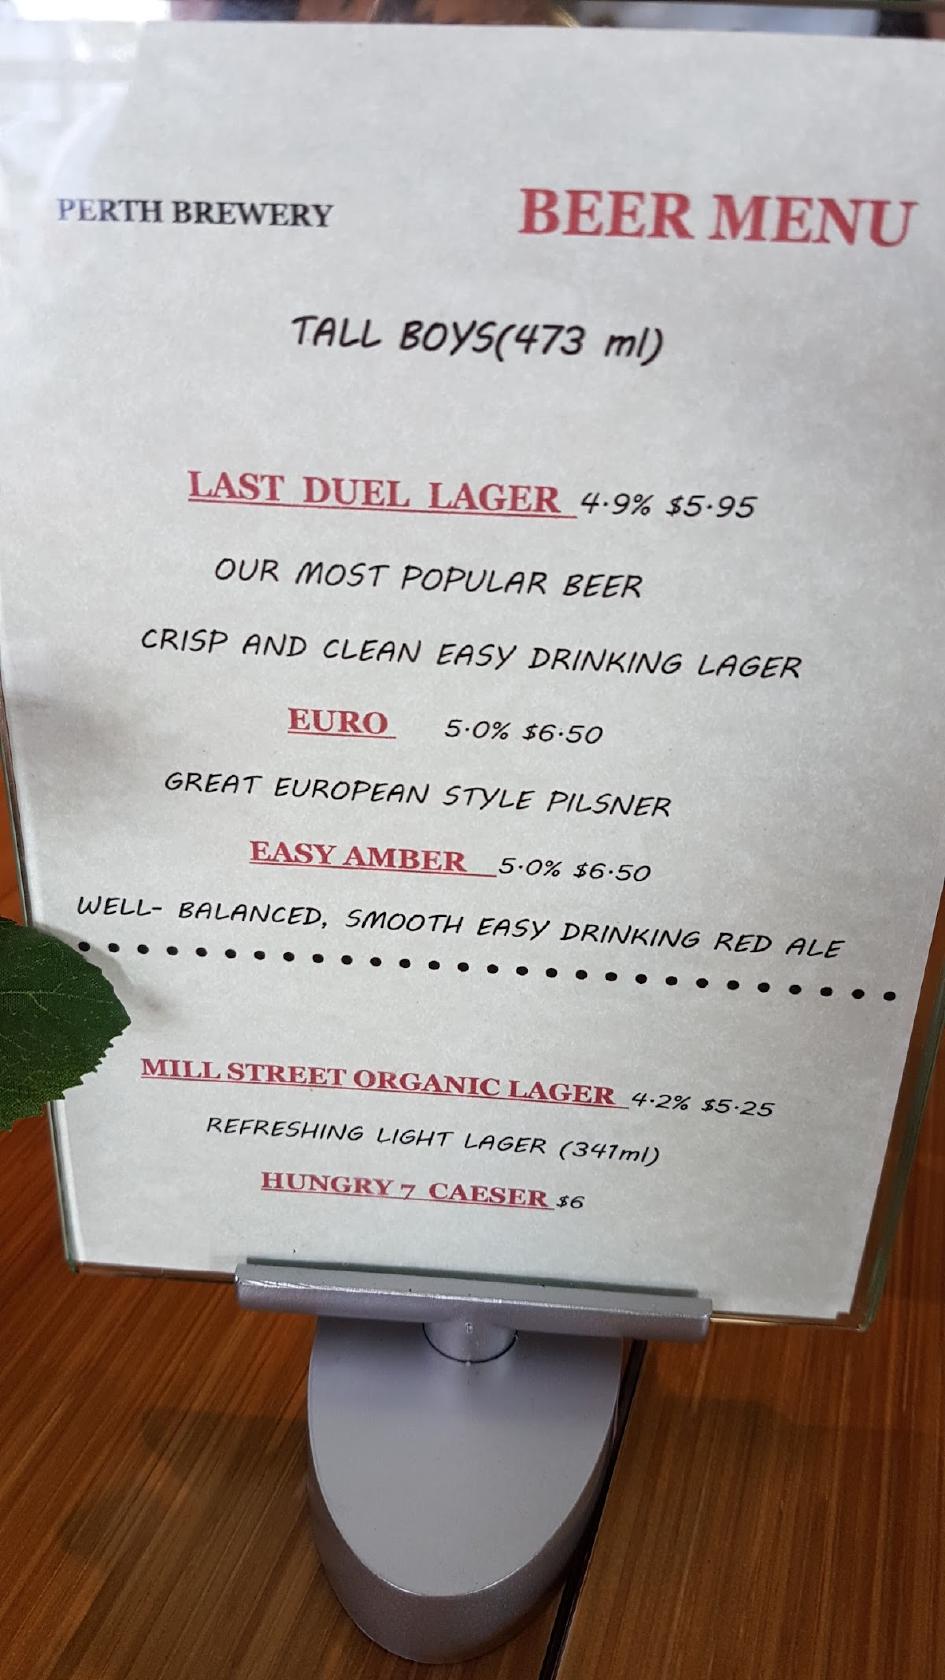 PERTH BREWERY BEER MENU
TALL BOYS(473 ml)
LAST DUEL LAGER 4.9% $5.95
OUR MOST POPULAR BEER
CRISP AND CLEAN EASY DRINKING LAGER
EURO 5.0% $6.50
GREAT EUROPEAN STYLE PILSNER
EASY AMBER 5.0% $6.50
WELL- BALANCED, SMOOTH EASY DRINKING RED ALE
MILL STREET ORGANIC LAGER 4.2% $5.25
REFRESHING LIGHT LAGER (341ml)
HUNGRY 7 CAESER $6